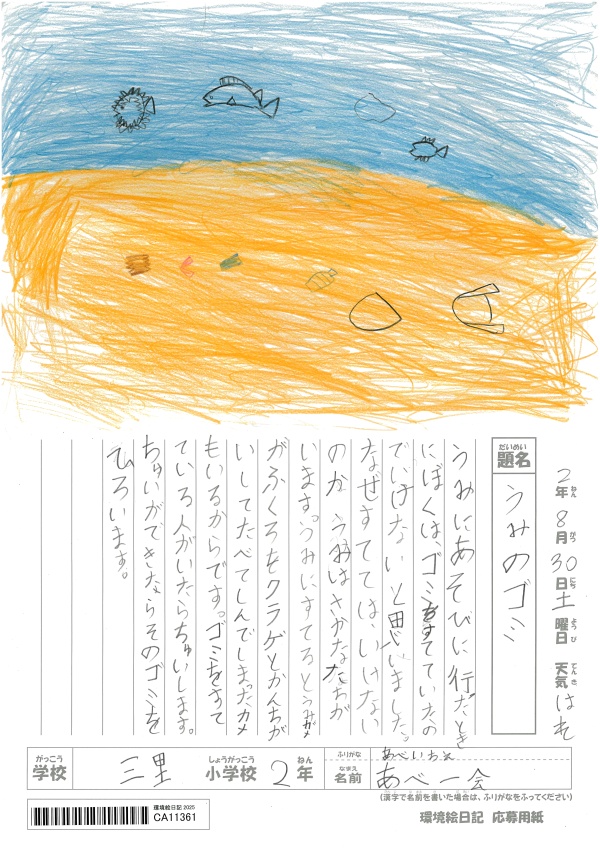 2年8月30日土曜日 天気はれ
ねん がつ にち ようび てんき
だいめい
題名
うみのゴミ
うみにあそびに行たとき
にぼくは、ゴミをすてていたの
でいけないと思いました。
なぜすてては、いけない
のか うみはさかなたちが
います。うみにすてるとうみガメ
がふくろをクラゲとかんちが
いしてたべてしんでしまったカメ
もいるからです。ゴミをすて
ている人がいたらちゅいします。
ちゅいができたらそのゴミを
ひろいます。
がっこう しょうがっこう ねん
学校 三里 小学校 2年
ふりがな あべいちえ
なまえ
名前 あべ一会
(漢字で名前を書いた場合は、ふりがなをふってください)
環境絵日記 2025
CA11361
環境絵日記 応募用紙